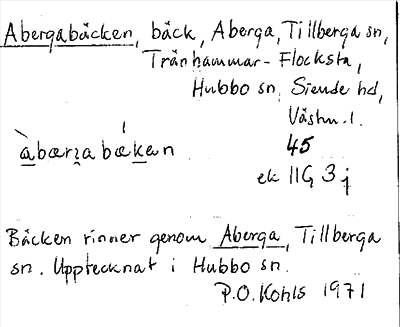 Abergabäcken, bäck, Aberga, Tillberga sn,
Trånhammar - Flocksta,
Hubbo sn, Siende hd,
Västm. l.
45
ek 11G 3j
Bäcken rinner genom Aberga, Tillberga
sn. Upptecknat i Hubbo sn.
P.O. Kohls 1971